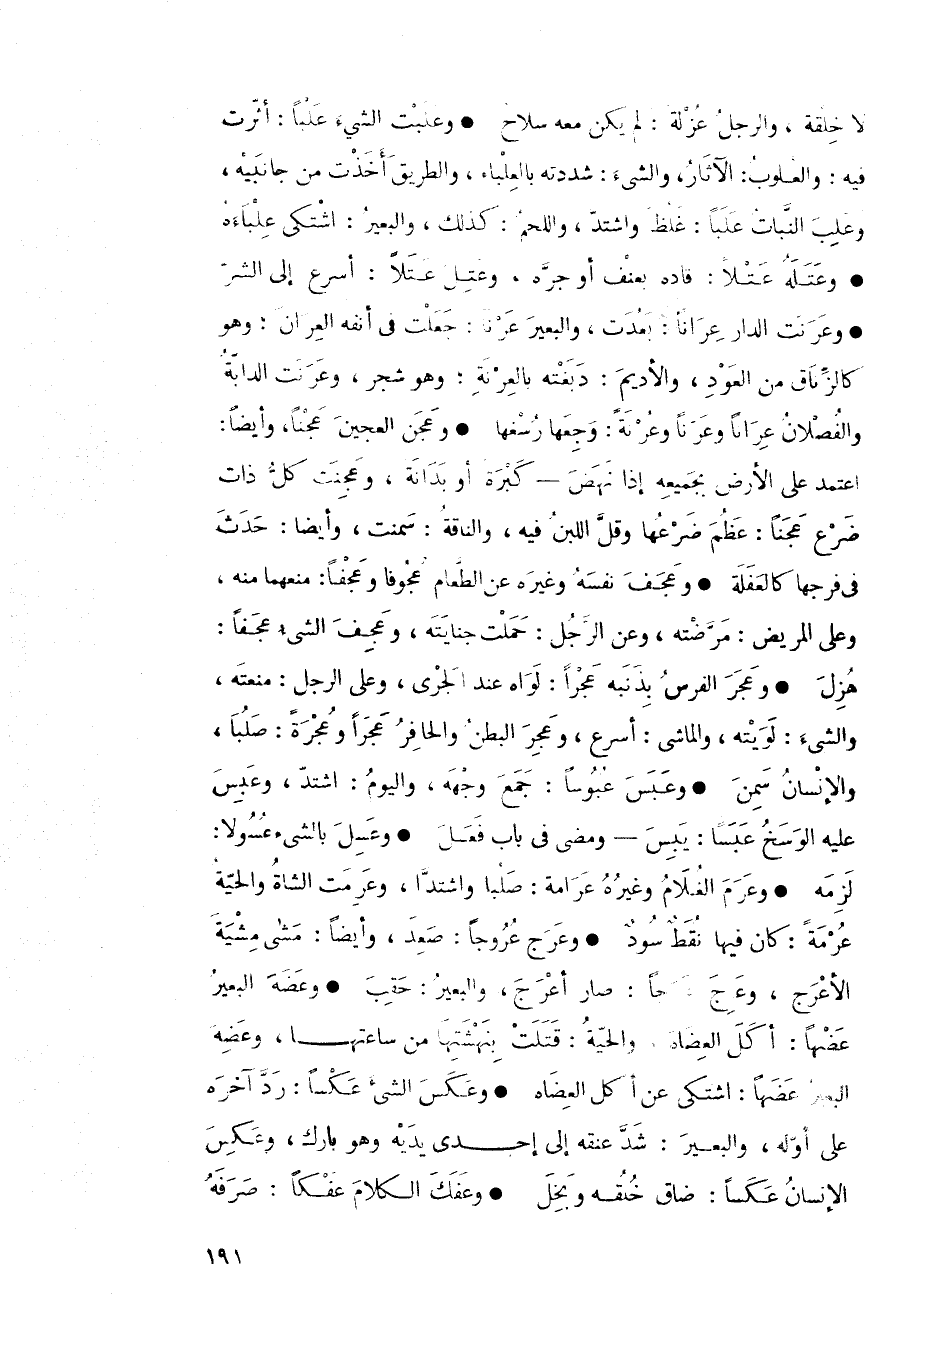 لا خِلْقة ، والرجلُ عُزْلة : لم يكن معه سلاح ● وعلَبْت الشيءَ عَلْباً : أثّرت
فيه : والعُلوبُ: الآثَارُ، والشيءَ : شددته بالعِلْباء ، والطريق أَخَذْت من جانبَيْه ،
وعلِبَ النَّباتُ عَلَباً : غَلُظَ واشتدّ ، واللحمُ : كذلك ، والبعيرُ : اشْتكى عِلْبَاءَه
● وعَتَلَهُ عَتْلاً : قاده بعنْف أو جرَّه ، وعتِل عَتَلاً : أسرع إلى الشرّ
● وعَرَنَت الدار عِرَاناً : بَعُدَت ، والبعيرَ عَرْنا : جَعَلْت فى أنفه العِرانَ : وهو
كالزِّناق من العَوْدِ ، والأديمَ : دَبَغْته بالعِرْنَةِ : وهو شجر ، وعرَنت الدابّةُ
والفُصْلانُ عِرَاناً وعَرَناً وعُرْنَةً : وَجِعَها رُسْغها ● وعَجَن العجينَ عَجْناً، وأيضاً:
اعتمد على الأرض بجَميعِه إذا نهَضَ — كَبْرَةً أو بَدَانَة ، وعجِنَت كلُّ ذات
ضَرْع عَجَناً : عَظُمَ ضَرْعُها وقلَّ اللبنُ فيه ، والناقةُ : سَمنت ، وأيضا : حَدَثَ
فى فرجها كالعَفَلَة ● وعَجَفَ نفسَهُ وغيرَه عن الطَّعام عُجُوفا وعَجْفاً: منعهما منه ،
وعلى المريض : مَرَّضْته ، وعن الرَّجُل : حَمَلْت جنايَتَه ، وعَجِفَ الشىء عجَفاً :
هُزِلَ ● وعَجَرَ الفرسُ بِذَنَبه عَجْراً : لَوَاه عند الجَرْى ، وعلى الرجل : منعتَه ،
والشىءَ : لَوَيْته ، والماشى : أسرع ، وعجِرَ البطنُ والحافِرُ عَجَراً وعُجْرَةً : صَلُبَا ،
والإنْسانُ سَمِنَ ● وعَبَسَ عُبُوساً : جَمَعَ وجْهَه ، واليومُ : اشتدّ ، وعَبِسَ
عليه الوَسَخُ عَبَسًا : يَبِسَ — ومضى فى باب فَعَلَ ● وعَسِلَ بالشىء عُسُولا:
لَزِمَه ● وعَرَمَ الغُلَامُ وغيرُهُ عَرَامة : صَلُبا واشتدَّا ، وعَرِمَت الشاةُ والحَيّةُ
عُرْمَةً : كان فيها نُقَطٌ سُودٌ ● وعرَج عُرُوجاً : صَعِدَ ، وأيضاً : مَشٰى مِشْيَةَ
الأعْرَج ، وعَرِجَ عَرَجاً : صار أعْرَجَ ، والبعيرُ : حَقِبَ ● وعَضَهَ البعيرُ
عَضْهاً : أكَلَ العِضَاهَ ، والحَيّةُ : قَتَلَتْ بِنَهْشَتِهَا من ساعتها ، وعَضِهَ
البعيرُ عَضَهاً : اشتكى عن أكل العِضَاه ● وعَكَسَ الشىءَ عَكْساً : رَدَّ آخرَه
على أوّله ، والبعيرَ : شَدَّ عنقه إلى إحدى يدَيْه وهو بارك ، وعَكِسَ
الإنسانُ عَكَساً : ضاق خُلُقه وبَخِلَ ● وعَفَكَ الكلامَ عفْكاً : صَرَفَهُ
١٩١